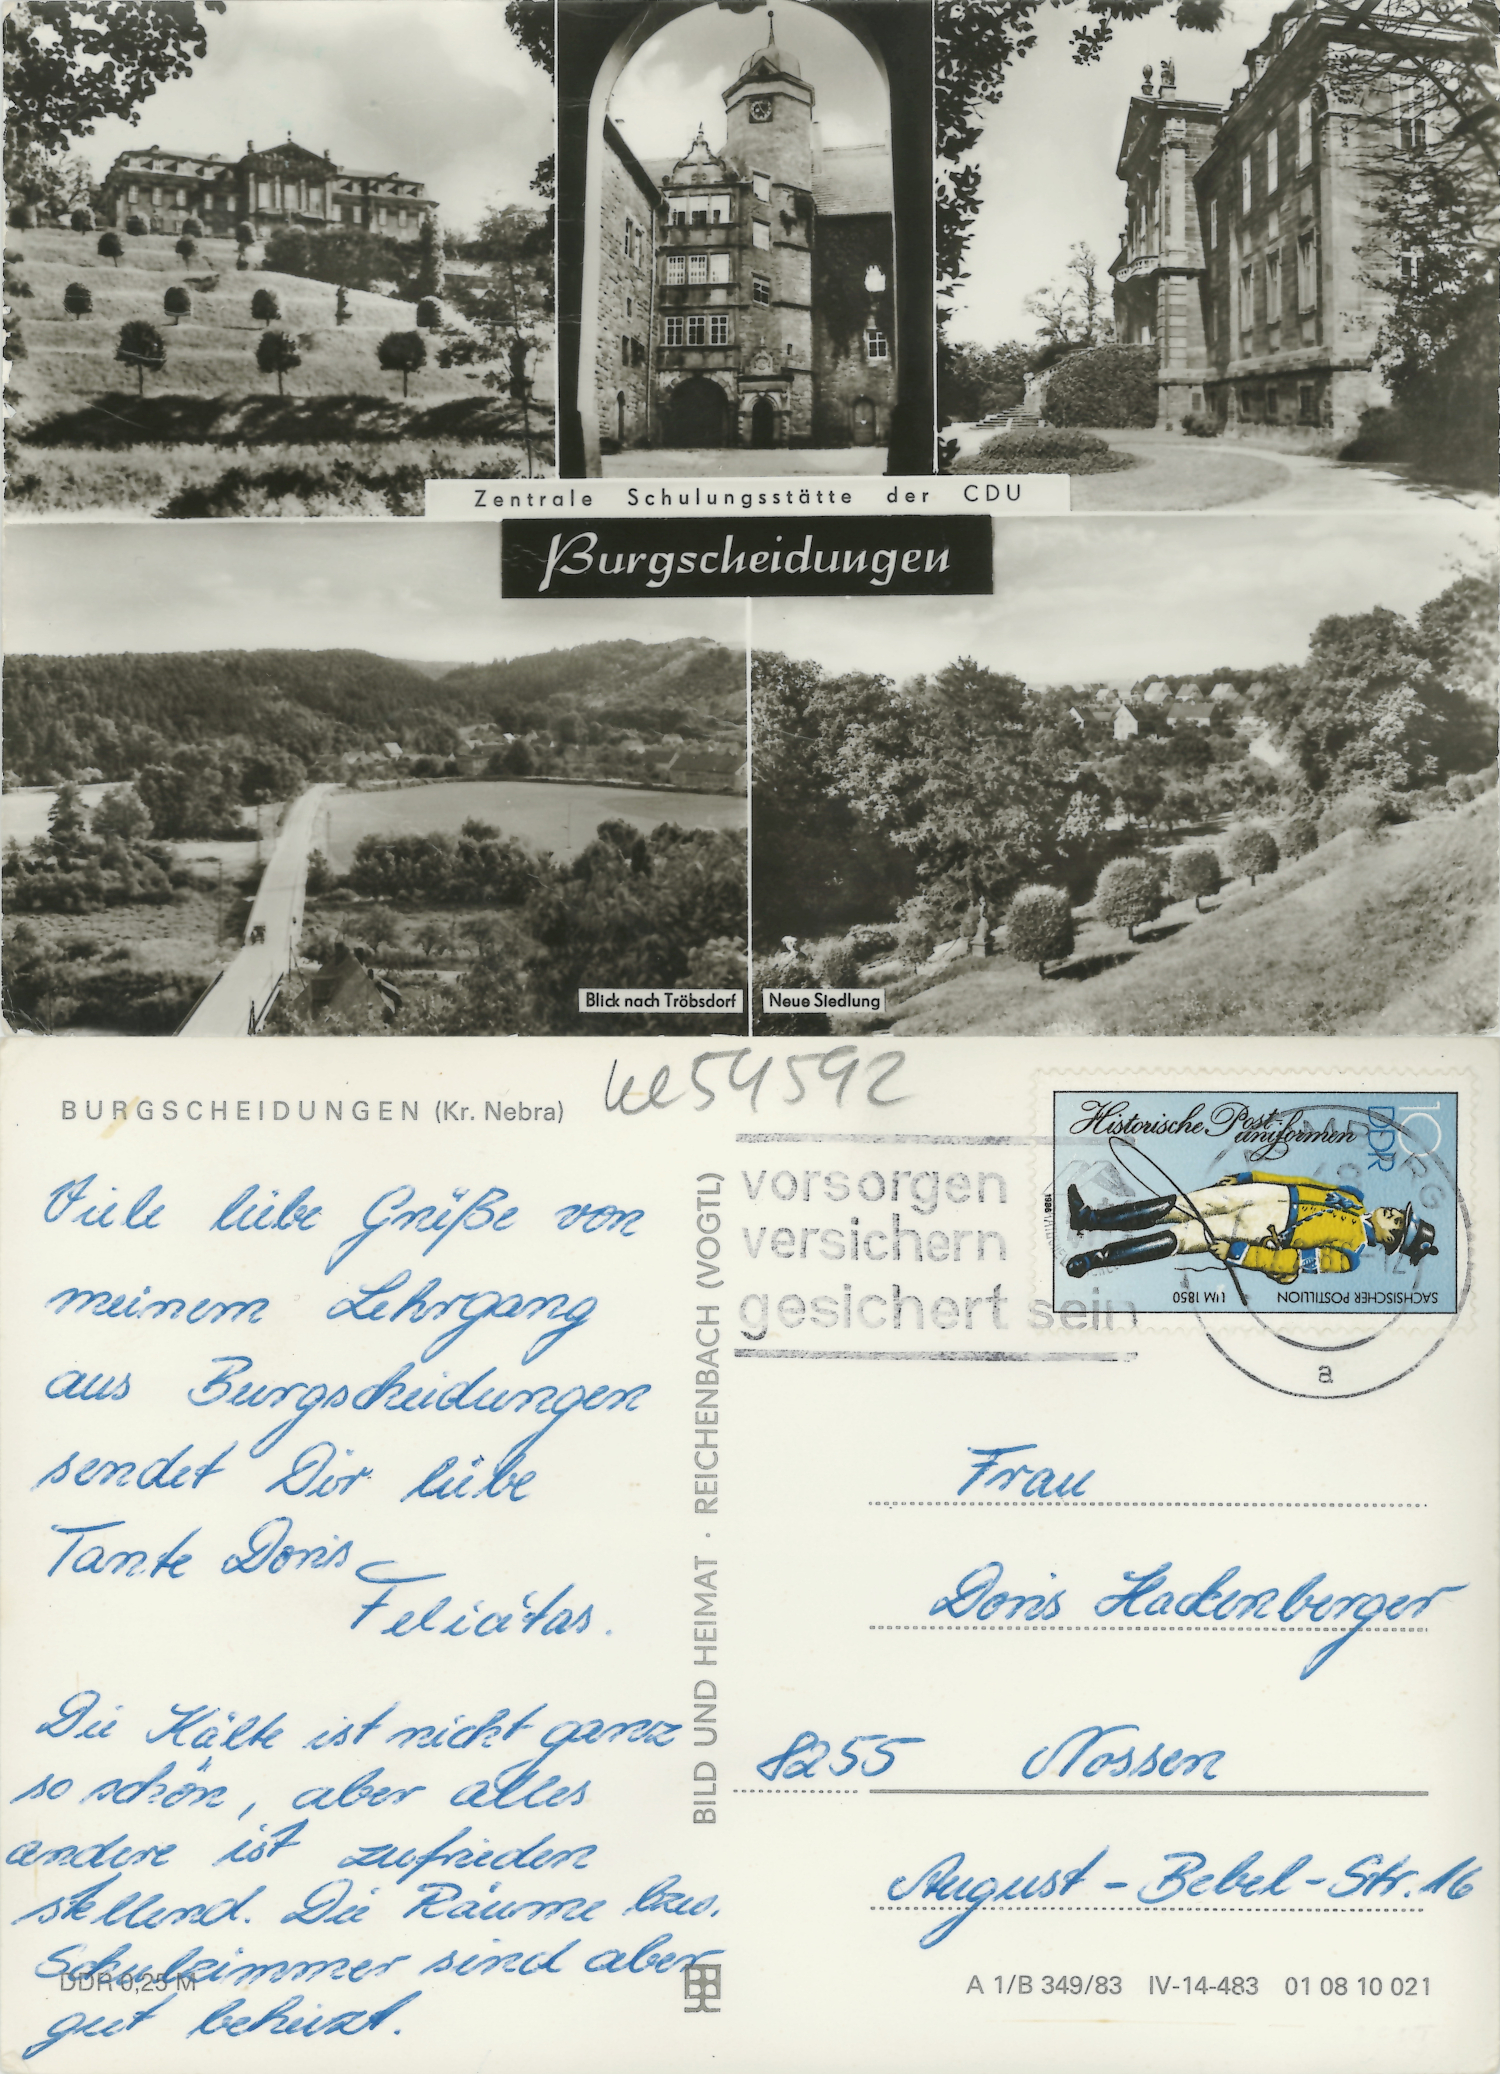 Zentrale Schulungsstätte der CDU
Burgscheidungen
Blick nach Tröbsdorf
Neue Siedlung
BURGSCHEIDUNGEN (Kr. Nebra)
54592
Viele liebe Grüße von
meinem Lehrgang
aus Burgscheidungen
sendet Dir liebe
Tante Doris
Felicitas.
Die Kälte ist nicht ganz
so schön, aber alles
andere ist zufrieden
stellend. Die Räume bzw.
Schulzimmer sind aber
gut beheizt.
DDR 0,25 M
BILD UND HEIMAT · REICHENBACH (VOGTL)
vorsorgen
versichern
gesichert sein
Historische Post-
uniformen
10
DDR
SÄCHSISCHER POSTILLION UM 1850
1986
a
Frau
Doris Hackenberger
8255 Nossen
August-Bebel-Str. 16
A 1/B 349/83 IV-14-483 01 08 10 021